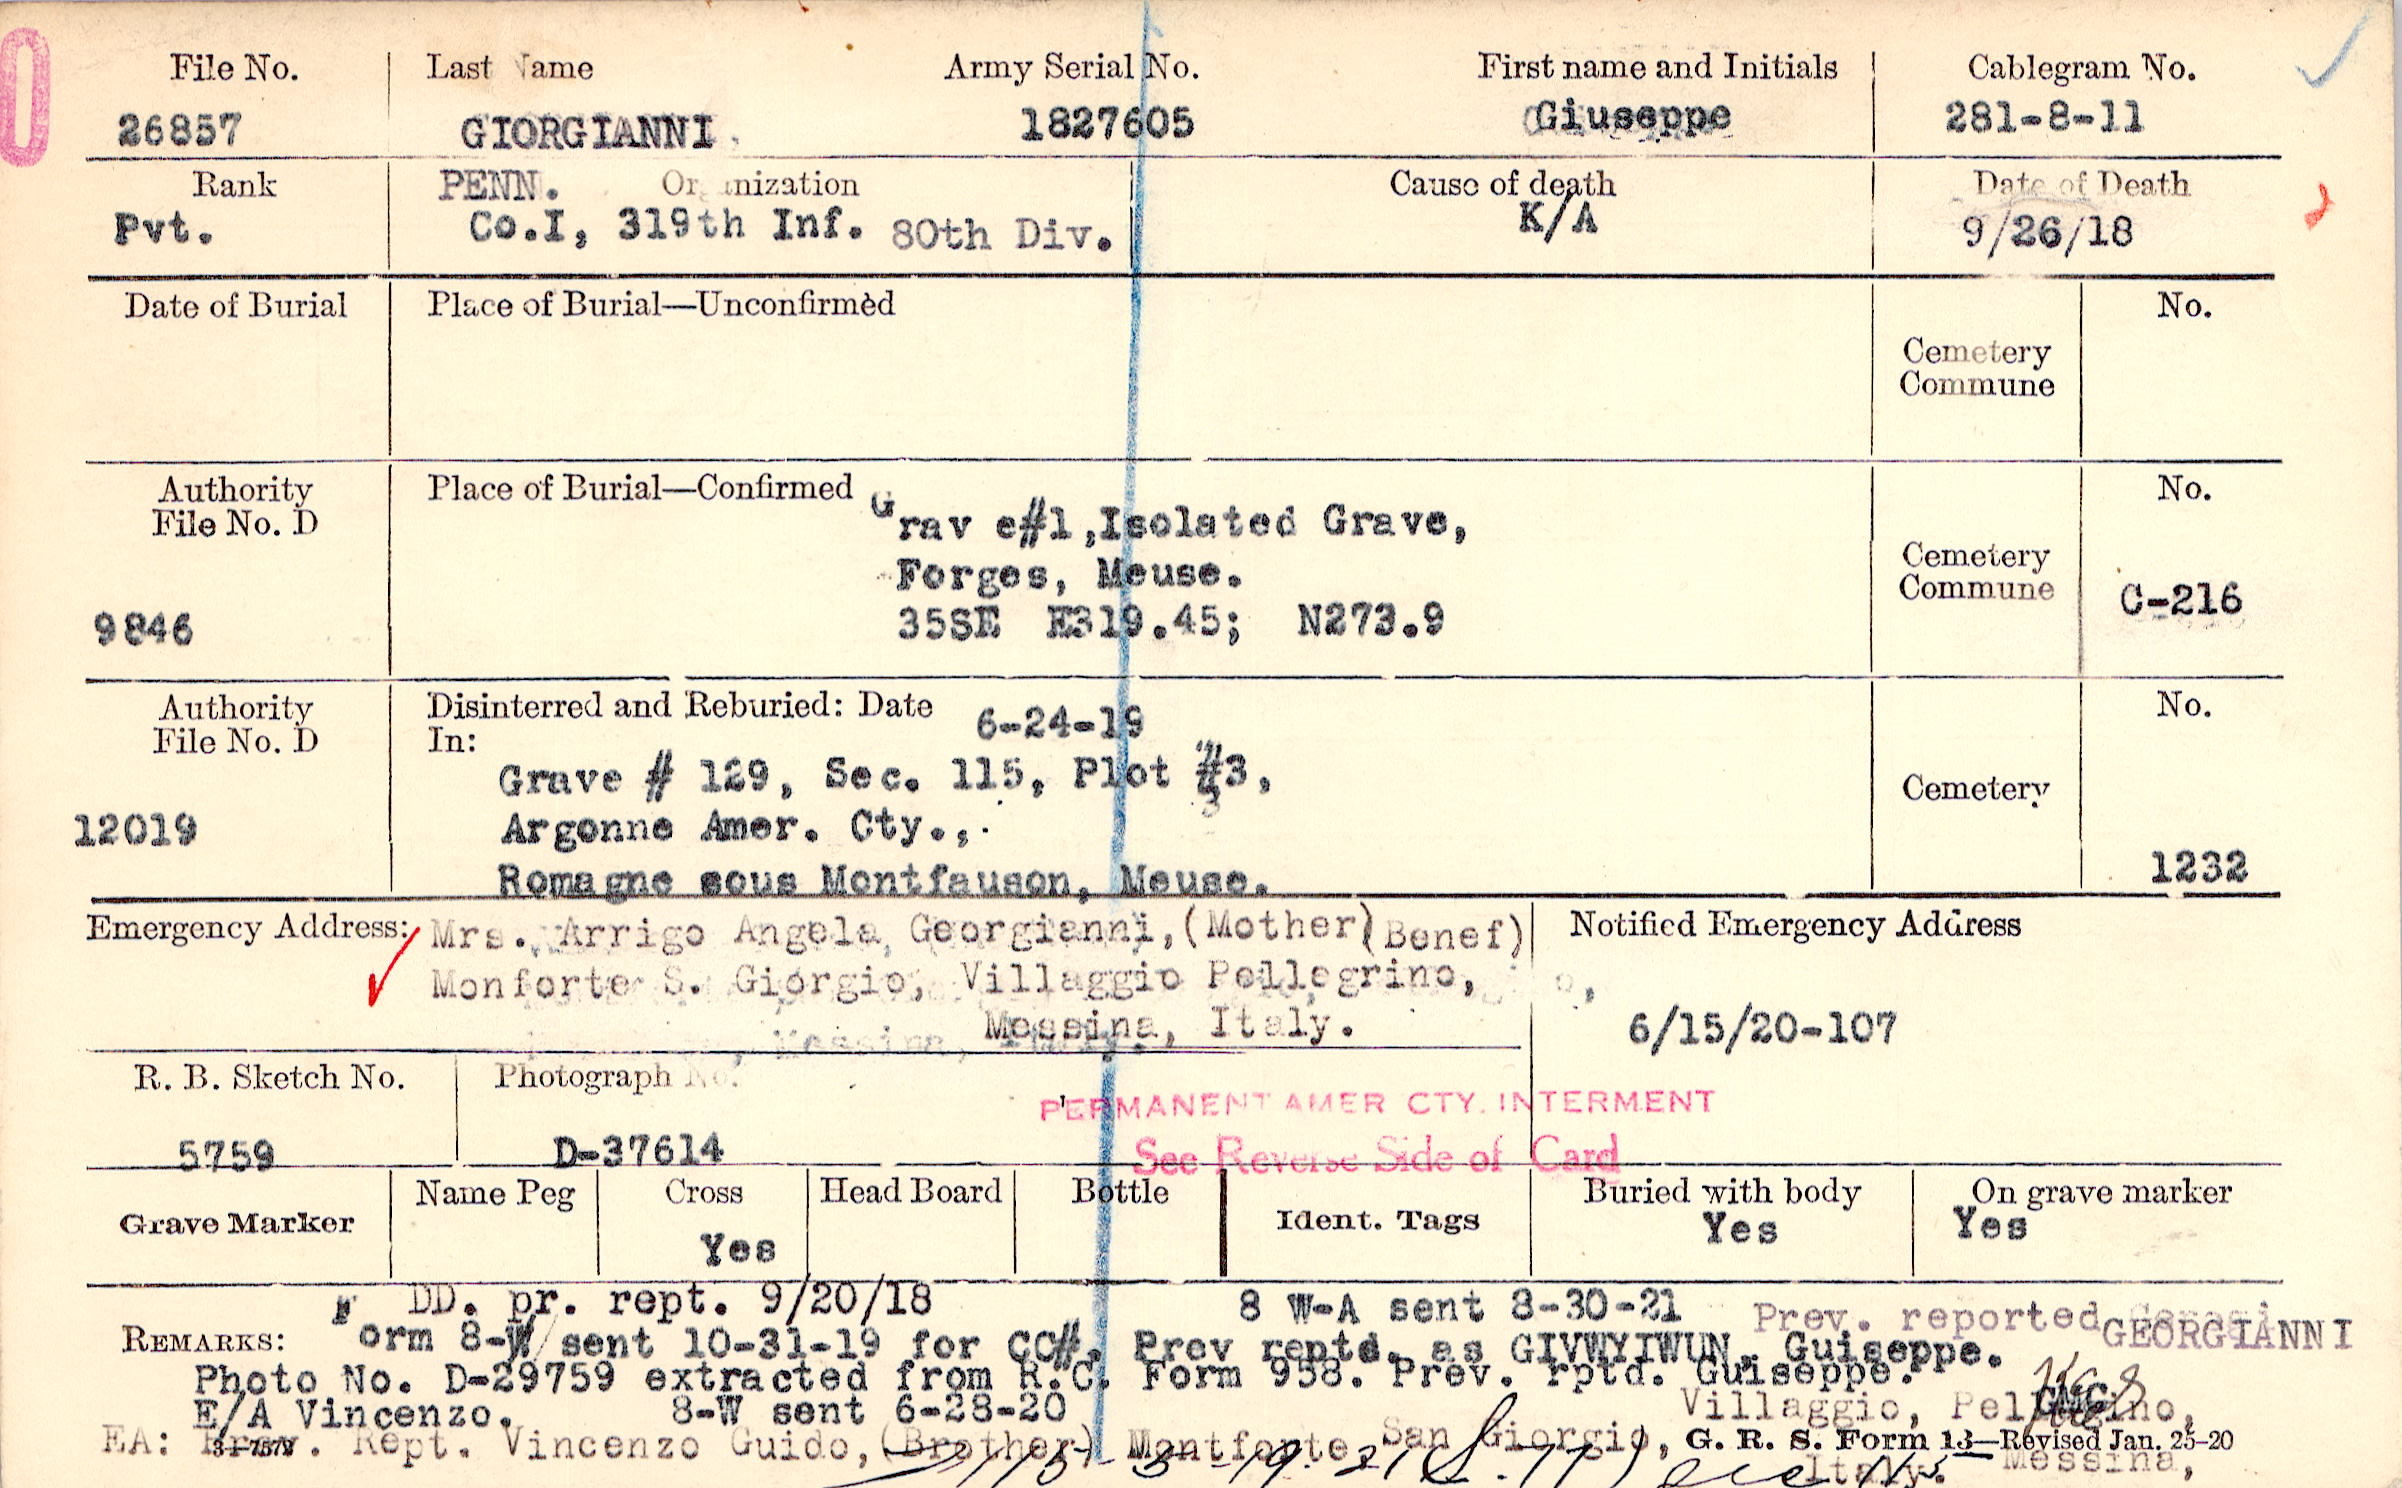 File No. Last Name Army Serial No. First name and Initials Cablegram No.
26857 GIORGIANNI. 1827605 Giuseppe 281-8-11
Rank PENN. Organization Cause of death Date of Death
Pvt. Co.I, 319th Inf. 80th Div. K/A 9/26/18
Date of Burial Place of Burial—Unconfirmed No.
Cemetery
Commune
Authority Place of Burial—Confirmed No.
File No. D Grav e#1,Isolated Grave,
Forges, Meuse. Cemetery
Commune C-216
9846 35SE E319.45; N273.9
Authority Disinterred and Reburied: Date 6-24-19 No.
File No. D In:
Grave # 129, Sec. 115, Plot #3, Cemetery
3
12019 Argonne Amer. Cty.,.
Romagne sous Montfauson, Meuse. 1232
Emergency Address: Mrs. Arrigo Angela Georgianni,(Mother)Benef) Notified Emergency Address
Monforte S. Giorgio, Villaggio Pellegrino,
Messina, Italy. 6/15/20-107
R. B. Sketch No. Photograph No.
PERMANENT AMER CTY. INTERMENT
5759 D-37614 See Reverse Side of Card
Grave Marker Name Peg Cross Head Board Bottle Ident. Tags Buried with body On grave marker
Yes Yes Yes
DD. pr. rept. 9/20/18 8 W-A sent 8-30-21 Prev. reported GEORGIANNI
REMARKS: Form 8-W sent 10-31-19 for CC#. Prev reptd. as GIVWYIWUN, Guiseppe.
Photo No. D-29759 extracted from R.C. Form 958. Prev. rptd. Guiseppe.
E/A Vincenzo. 8-W sent 6-28-20 Villaggio, Pellegrino,
EA: Prev. Rept. Vincenzo Guido,(Brother) Montforte San Giorgio, G. R. S. Form 13—Revised Jan. 25-20
Italy. Messina,